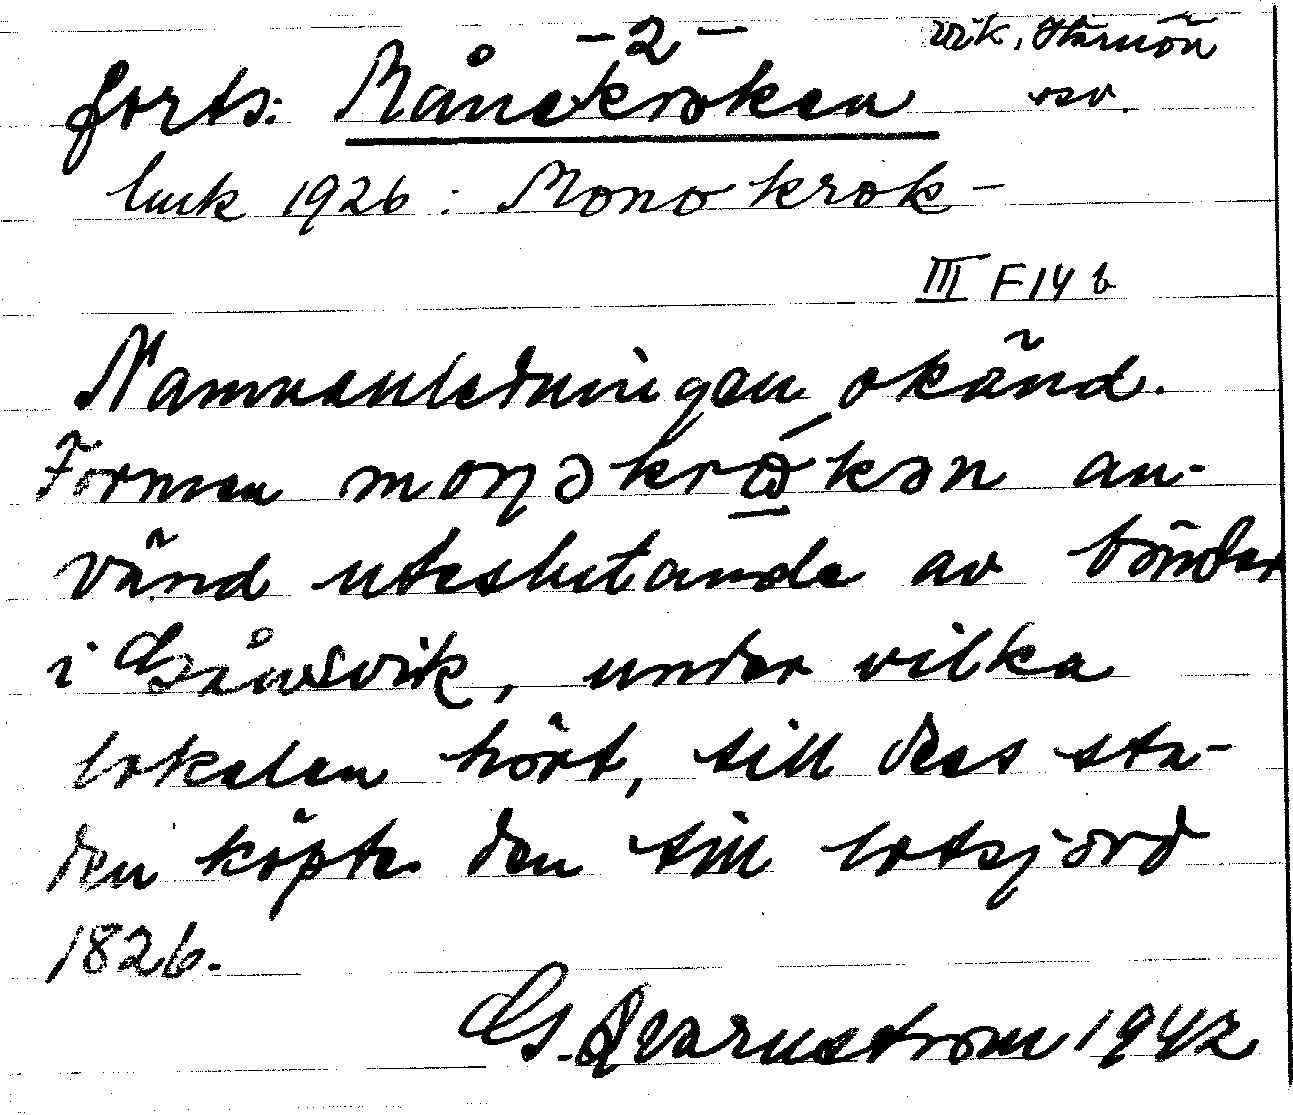 -2-
vik, Härnön
forts. Månekroken sv.
luck 1926: Monokrok-
III F 14 b
Namnanledningen okänd.
Formen moŋəkrωkən an-
vänd uteslutande av bönder
i Gånsvik, under vilka
lokalen hört, till dess sta-
den köpte den till lotsjord
1826.
G. Qvarnström 1942